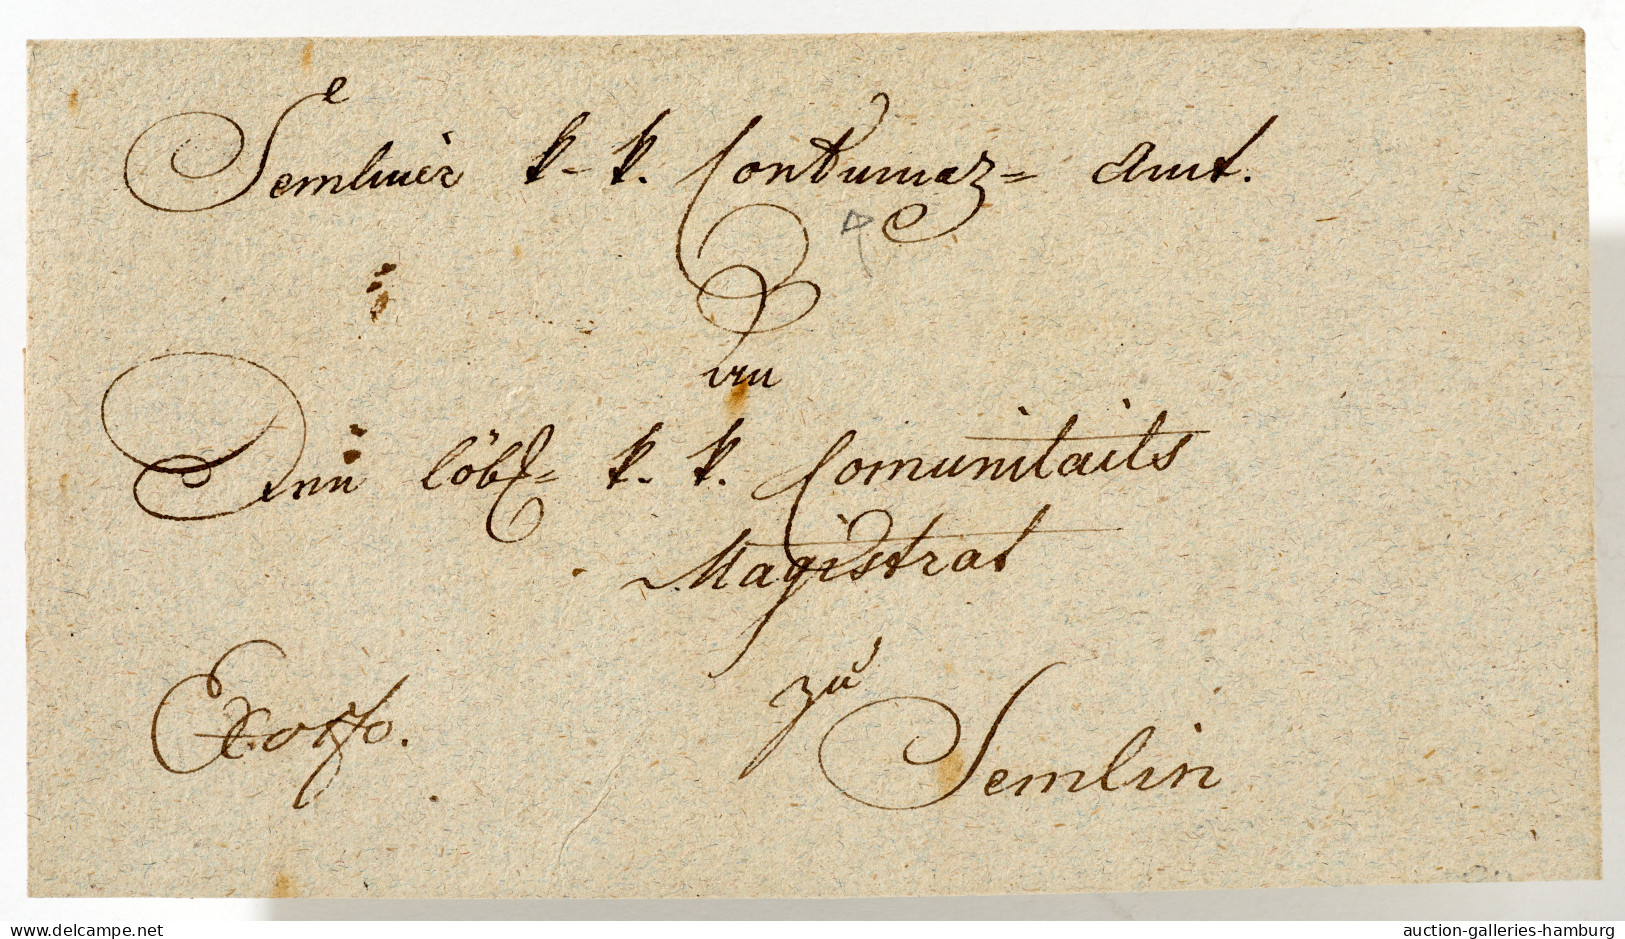 Semliner k. k. Contumaz= Amt.
an
Den löbl= k. k. Comunitaits
Magistrat
Exoffo.
zu
Semlin
delcampe.net
auction-galleries-hamburg